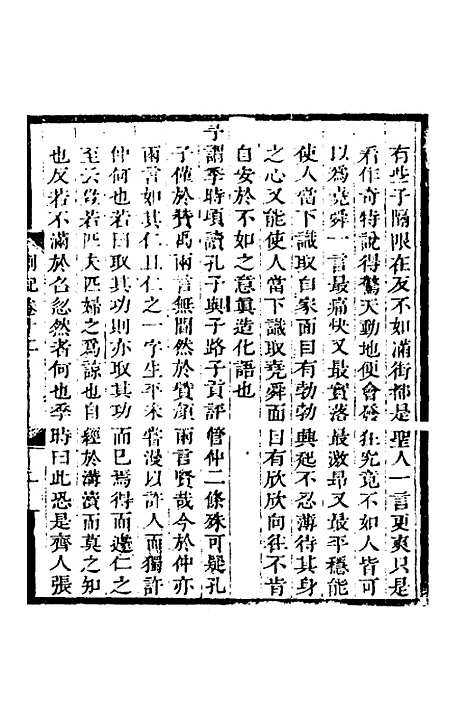 有些子隔限在反不如滿街都是聖人一言更爽只是
看作奇特說得驚天動地便會發狂究竟不如人皆可
以爲堯舜一言最痛快又最實落最激昂又最平穩能
使人當下識取自家面目有勃勃興起不忍薄待其身
之心又能使人當下識取堯舜面目有欣欣向往不肯
自安於不如之意眞造化語也
子謂季時頃讀孔子與子路子貢評管仲二條殊可疑孔
子僅於贊禹兩言無閒然於贊顏兩言賢哉今於仲亦
兩言如其仁且仁之一字生平未嘗漫以許人而獨許
仲何也若曰取其功則亦取其功而已焉得而遽仁之
至云豈若匹夫匹婦之爲諒也自經於溝瀆而莫之知
也反若不滿於召忽然者何也季時曰此恐是齊人張
劄記卷十二